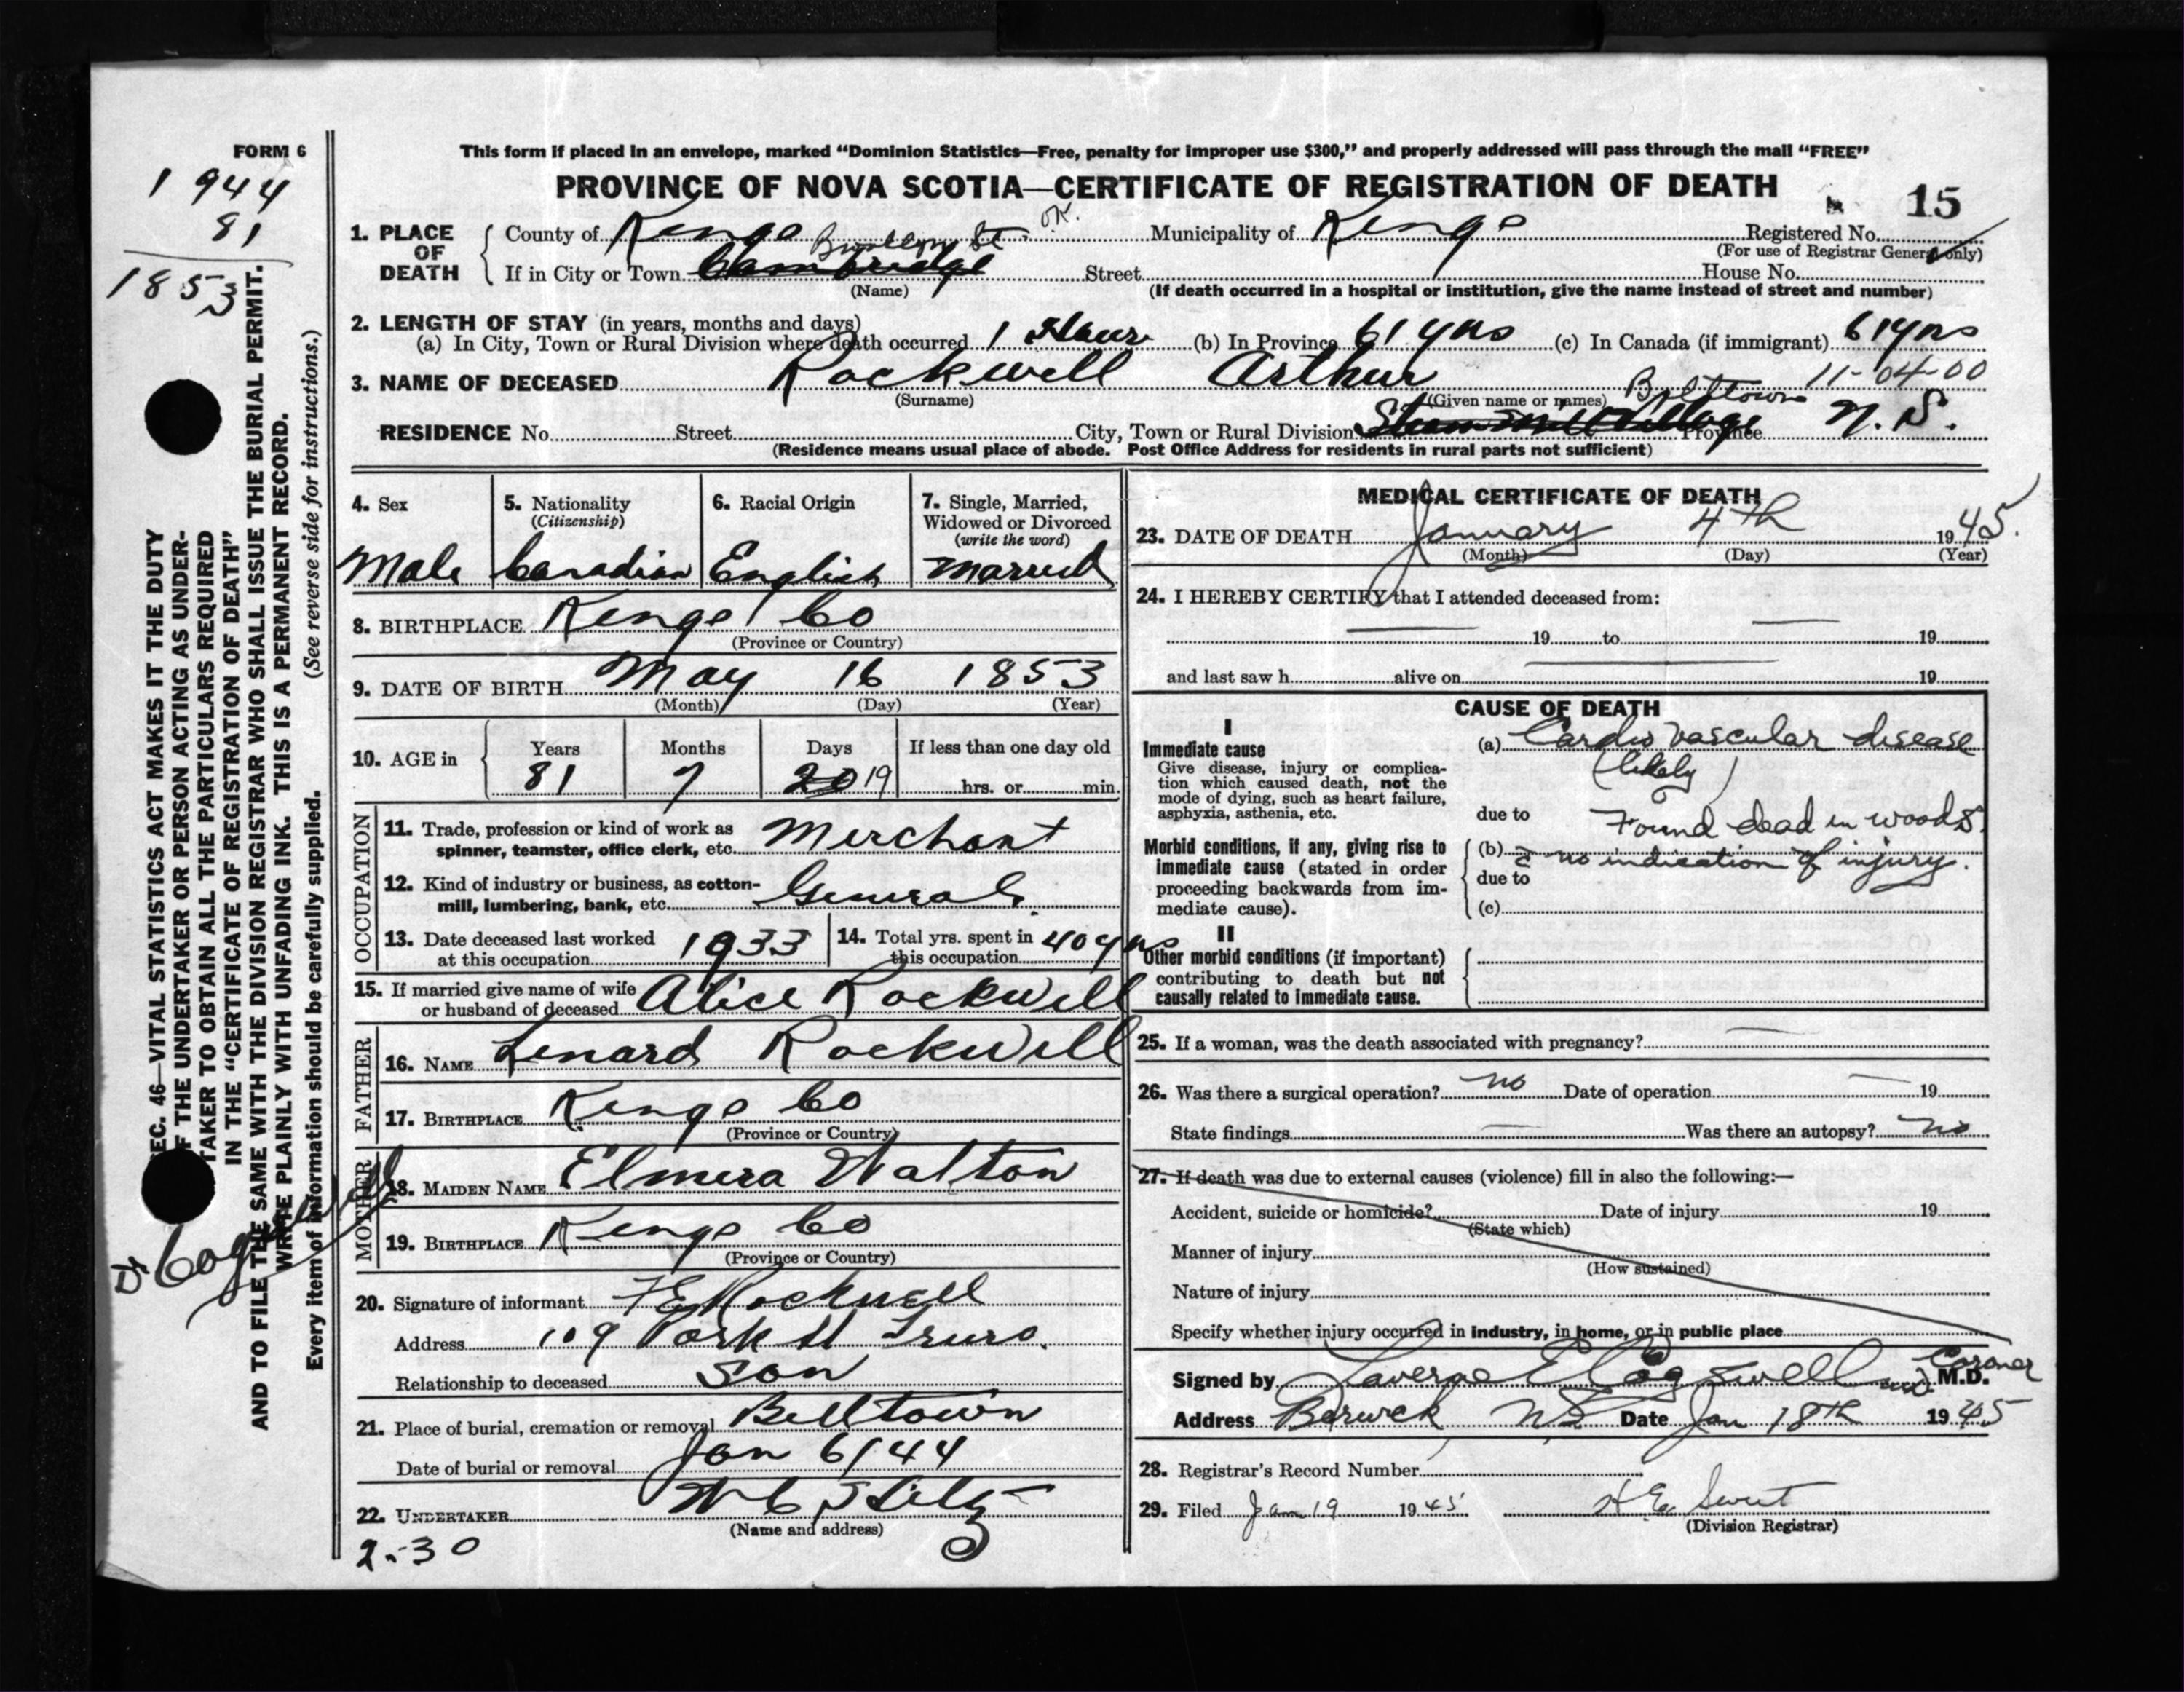 FORM 6
1944
81
1853
This form if placed in an envelope, marked “Dominion Statistics—Free, penalty for improper use $300,” and properly addressed will pass through the mail “FREE”
PROVINCE OF NOVA SCOTIA—CERTIFICATE OF REGISTRATION OF DEATH
15
1. PLACE OF DEATH
County of Kings Municipality of Kings Registered No.
(For use of Registrar General only)
Brooklyn St. OK.
If in City or Town Cambridge Street House No.
(Name) (If death occurred in a hospital or institution, give the name instead of street and number)
2. LENGTH OF STAY (in years, months and days)
(a) In City, Town or Rural Division where death occurred 1 Hour (b) In Province 61 yrs (c) In Canada (if immigrant) 61 yrs
3. NAME OF DECEASED Rockwell Arthur 11-04-00
(Surname) (Given name or names) Belltown
RESIDENCE No. Street City, Town or Rural Division Steam Mill Village Province N.S.
(Residence means usual place of abode. Post Office Address for residents in rural parts not sufficient)
4. Sex
Male
5. Nationality
(Citizenship)
Canadian
6. Racial Origin
English
7. Single, Married,
Widowed or Divorced
(write the word)
Married
8. BIRTHPLACE Kings Co
(Province or Country)
9. DATE OF BIRTH May 16 1853
(Month) (Day) (Year)
10. AGE in
Years Months Days If less than one day old
81 7 20 19 hrs. or min.
OCCUPATION
11. Trade, profession or kind of work as
spinner, teamster, office clerk, etc. Merchant
12. Kind of industry or business, as cotton-
mill, lumbering, bank, etc. General
13. Date deceased last worked
at this occupation 1933
14. Total yrs. spent in
this occupation 40 yrs
15. If married give name of wife
or husband of deceased Alice Rockwell
FATHER
16. NAME Lenard Rockwell
17. BIRTHPLACE Kings Co
(Province or Country)
MOTHER
18. MAIDEN NAME Elmera Walton
19. BIRTHPLACE Kings Co
(Province or Country)
20. Signature of informant F E Rockwell
Address 109 Park St Truro.
Relationship to deceased Son
21. Place of burial, cremation or removal Belltown
Date of burial or removal Jan 6/44
22. UNDERTAKER W C
(Name and address)
2.30
MEDICAL CERTIFICATE OF DEATH
23. DATE OF DEATH January 4th 1945.
(Month) (Day) (Year)
24. I HEREBY CERTIFY that I attended deceased from:
19 to 19
and last saw h alive on 19
CAUSE OF DEATH
I
Immediate cause
Give disease, injury or complica-
tion which caused death, not the
mode of dying, such as heart failure,
asphyxia, asthenia, etc.
(a) Cardio vascular disease
(likely)
due to Found dead in woods.
Morbid conditions, if any, giving rise to
immediate cause (stated in order
proceeding backwards from im-
mediate cause).
(b) c̄ no indication of injury.
due to
(c)
II
Other morbid conditions (if important)
contributing to death but not
causally related to immediate cause.
25. If a woman, was the death associated with pregnancy?
26. Was there a surgical operation? no Date of operation 19
State findings Was there an autopsy? no
27. If death was due to external causes (violence) fill in also the following:—
Accident, suicide or homicide? Date of injury 19
(State which)
Manner of injury
(How sustained)
Nature of injury
Specify whether injury occurred in industry, in home, or in public place
Signed by Laverne E Cogswell M.D. Coroner
Address Berwick NS Date Jan 18th 1945
28. Registrar's Record Number
29. Filed Jan 19 1945 H E Swet
(Division Registrar)
SEC. 46—VITAL STATISTICS ACT MAKES IT THE DUTY
OF THE UNDERTAKER OR PERSON ACTING AS UNDER-
TAKER TO OBTAIN ALL THE PARTICULARS REQUIRED
IN THE “CERTIFICATE OF REGISTRATION OF DEATH”
AND TO FILE THE SAME WITH THE DIVISION REGISTRAR WHO SHALL ISSUE THE BURIAL PERMIT.
WRITE PLAINLY WITH UNFADING INK. THIS IS A PERMANENT RECORD.
Every item of information should be carefully supplied. (See reverse side for instructions.)
Dr Cogswell